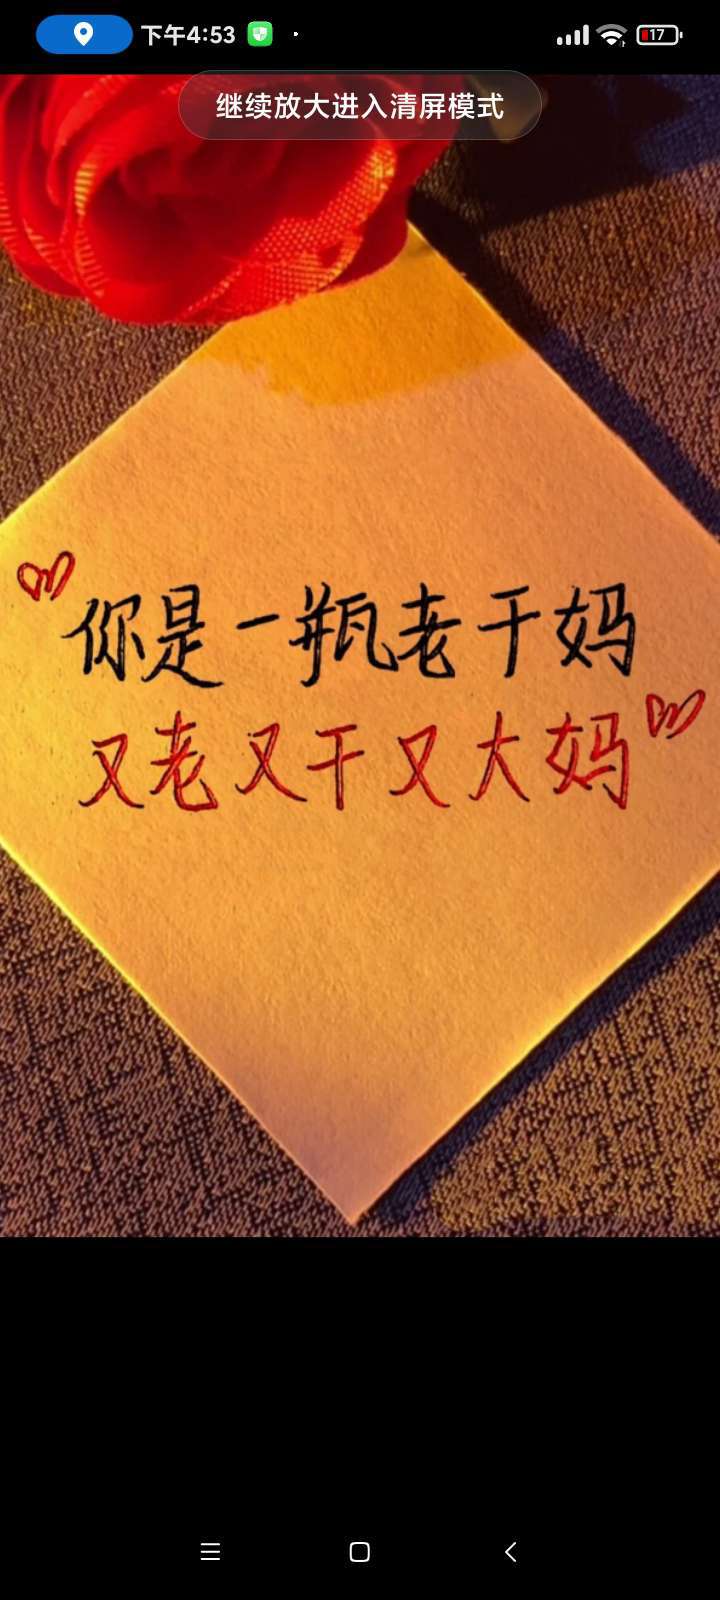 下午4:53
17
继续放大进入清屏模式
你是一瓶老干妈
又老又干又大妈